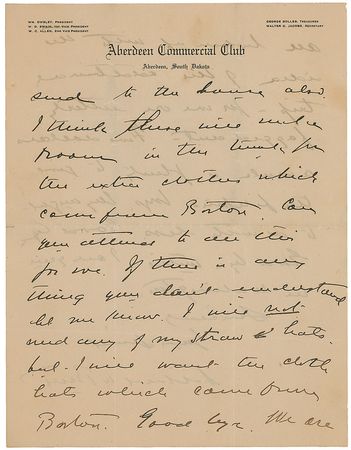 WM. SWISLEY, PRESIDENT
W. C. ALLEN, 2ND VICE PRESIDENT
GEORGE BOLLES, TREASURER
WALTER G. JACOBY, SECRETARY
Aberdeen Commercial Club
Aberdeen, South Dakota
send to the house also.
I think there will be
room in the trunk for
the extra clothes which
come from Boston. Can
you attend to all this
for me. If there is any
thing you don't understand
let me know. I will not
need any of my straw hats.
but I will want the cloth
hats which came from
Boston. Good bye. We are